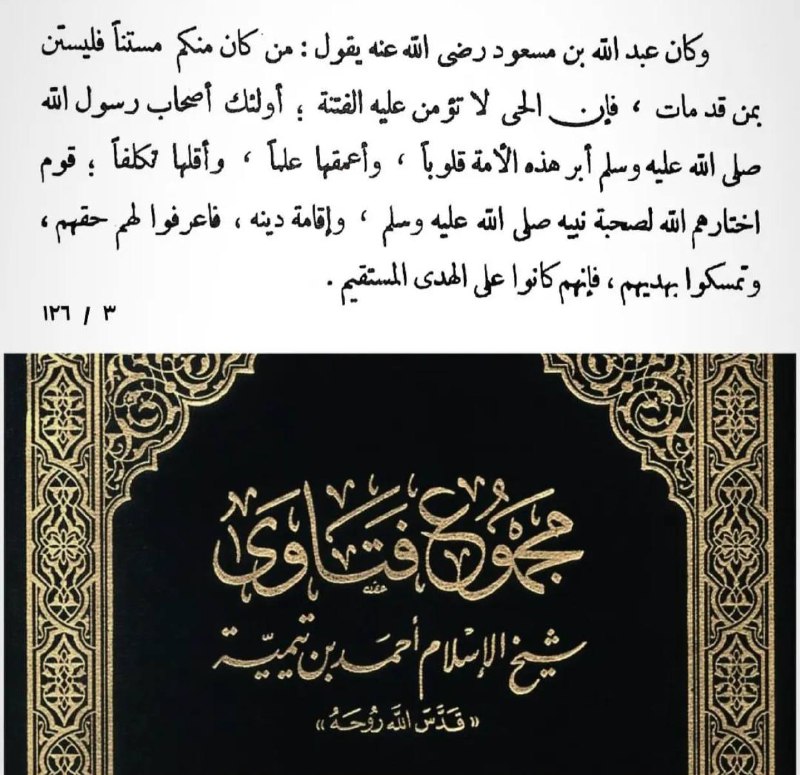 وكان عبد الله بن مسعود رضى الله عنه يقول : من كان منكم مستناً فليستن
بمن قد مات ، فإن الحى لا تؤمن عليه الفتنة ؛ أولئك أصحاب رسول الله
صلى الله عليه وسلم أبر هذه الأمة قلوباً ، وأعمقها علماً ، وأقلها تكلفاً ؛ قوم
اختارهم الله لصحبة نبيه صلى الله عليه وسلم ، وإقامة دينه ، فاعرفوا لهم حقهم ،
وتمسكوا بهديهم ، فإنهم كانوا على الهدى المستقيم .
٣ / ١٢٦
مجموع فتاوى
شيخ الإسلام أحمد بن تيمية
«قدَّسَ اللَّه رُوحَهُ»